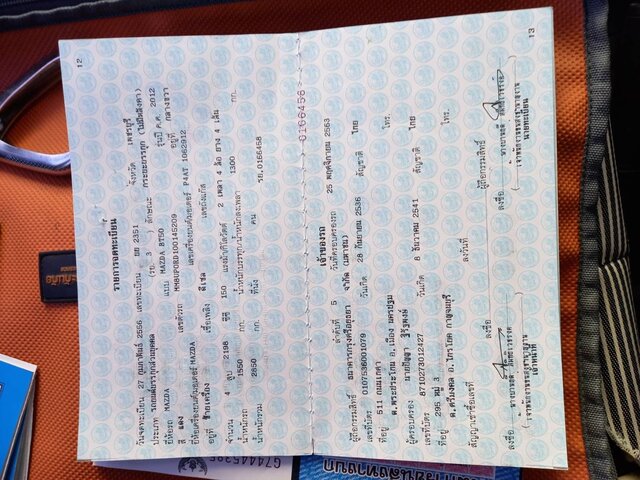 12
รายการจดทะเบียน
วันจดทะเบียน 27 กุมภาพันธ์ 2556 เลขทะเบียน ยย 2351 จังหวัด เพชรบุรี
ประเภท รถยนต์บรรทุกส่วนบุคคล (รย 3 ) ลักษณะ กระบะบรรทุก (ไม่มีหลังคา)
ยี่ห้อรถ MAZDA แบบ MAZDA BT50 รุ่นปี ค.ศ. 2012
สี แดง เลขตัวรถ MM8UP0RD100145209 อยู่ที่ กลางขวา
ยี่ห้อเครื่องยนต์/มอเตอร์ MAZDA เลขเครื่องยนต์/มอเตอร์ P4AT 1062912
อยู่ที่ ซ้ายเครื่อง เชื้อเพลิง ดีเซล เลขถังแก๊ส
จำนวน 4 สูบ 2198 ซีซี 150 แรงม้า/กิโลวัตต์ 2 เพลา 4 ล้อ ยาง 4 เส้น
น้ำหนักรถ 1550 กก. น้ำหนักบรรทุก/น้ำหนักลงเพลา 1300 กก.
น้ำหนักรวม 2850 กก. ที่นั่ง คน รย.0166458
0166458
13
เจ้าของรถ
ลำดับที่ 5 วันที่ครอบครองรถ 25 พฤศจิกายน 2563
ผู้ถือกรรมสิทธิ์ ธนาคารกรุงศรีอยุธยา จำกัด (มหาชน)
เลขที่บัตร 0107536001079 วันเกิด 28 กันยายน 2536 สัญชาติ ไทย
ที่อยู่ 511 ถนนเพชรเกษม โทร.
ต.พระประโทน อ.เมือง นครปฐม
ผู้ครอบครอง
เลขที่บัตร 8710273012427 วันเกิด 8 ธันวาคม 2541 สัญชาติ ไทย
ที่อยู่ 295 หมู่ 3 โทร.
อ.ไทรโยค กาญจนบุรี
สัญญาเช่าซื้อเลขที่ ลงวันที่ ผู้ถือกรรมสิทธิ์
ลงชื่อ ลงชื่อ
เจ้าหน้าที่ นายทะเบียน